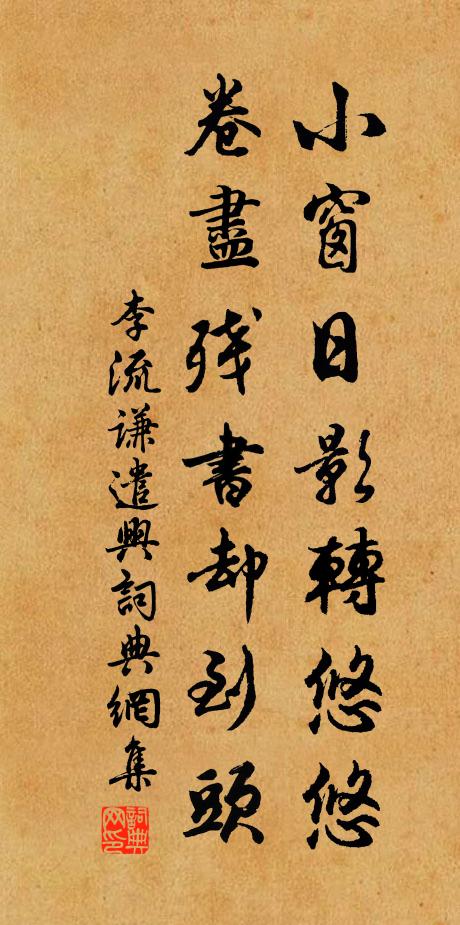 小窗日影轉悠悠
卷盡残書却到頭
李流謙遣興詞典網集
詞典网印